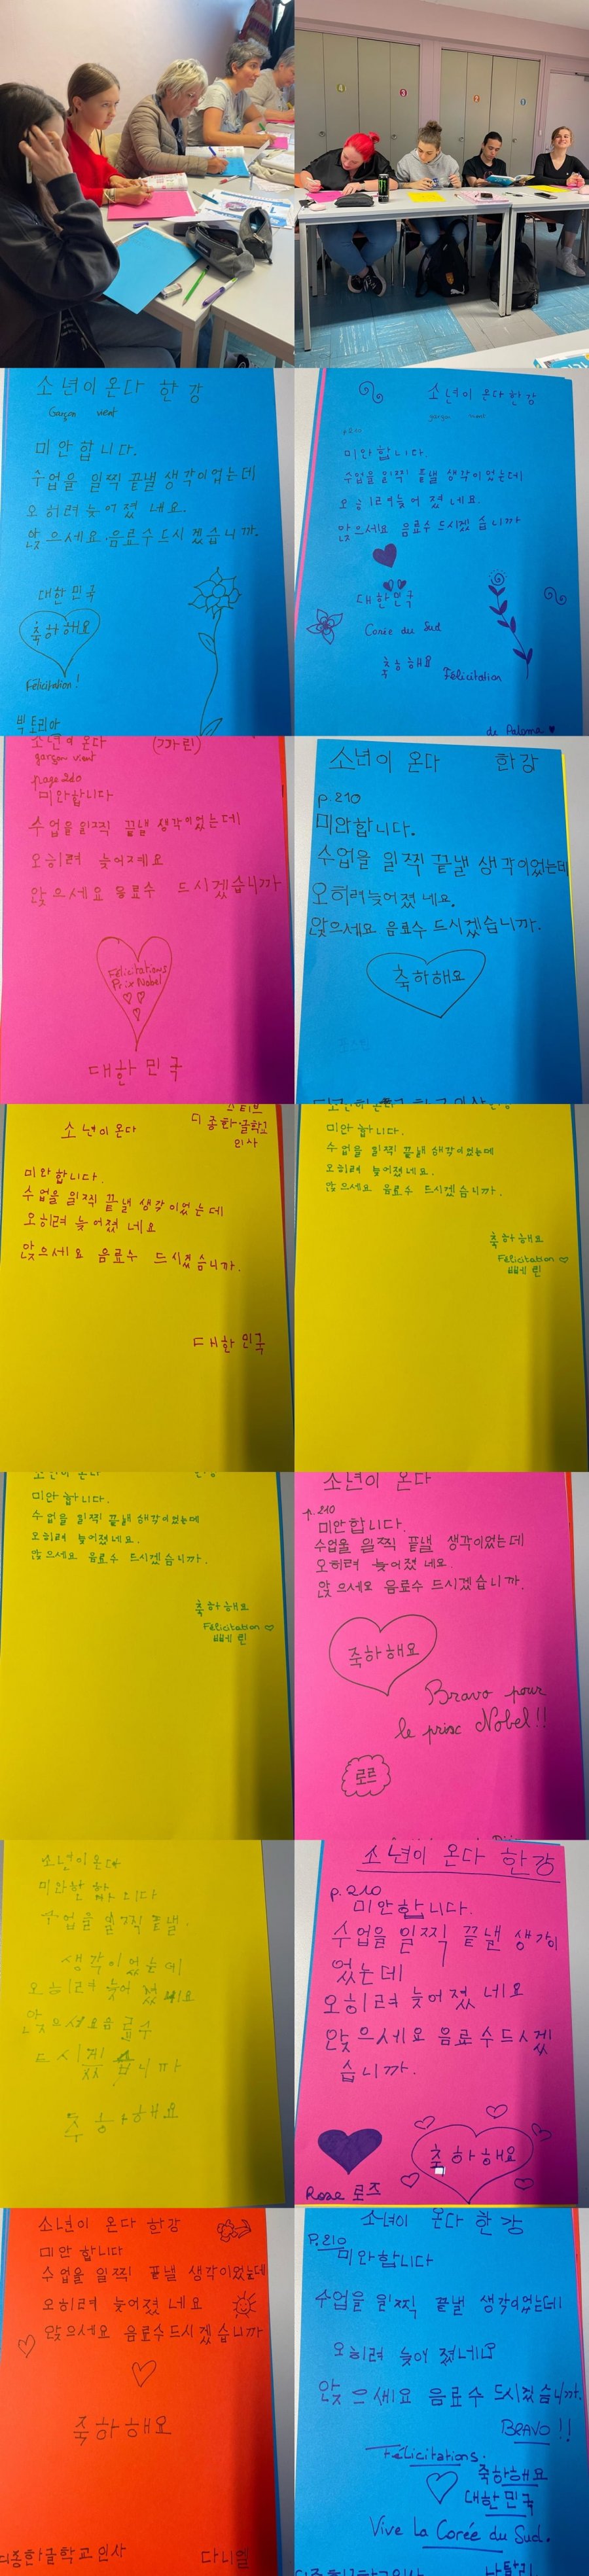 4
3
2
소년이 온다 한강
Garçon vient
미안합니다.
수업을 일찍 끝낼 생각이었는데
오히려 늦어졌 네요.
앉으세요. 음료수 드시겠습니까.
대한민국
축하해요
Félicitation!
빅토리아
소년이 온다 한강
garçon vient
미안합니다.
수업을 일찍 끝낼 생각이었는데
오히려 늦어 졌 네요.
앉으세요 음료수 드시겠 습니까
대한민국
Corée du Sud
축하해요 Félicitation
de Paloma
소년이 온다
garçon vient
page 210
미안합니다
수업을 일찍 끝낼 생각이었는데
오히려 늦어제요
앉으세요 음료수 드시겠습니까
Félicitations
Prix Nobel
대한민국
소년이 온다 한강
p.210
미안합니다.
수업을 일찍 끝낼 생각이었는데
오히려 늦어졌 네요.
앉으세요 음료수 드시겠습니까.
축하해요
스티브
소년이 온다
디종한글학교
인사
미안합니다.
수업을 일찍 끝낼 생각이었는데
오히려 늦어졌 네요
앉으세요 음료수 드시겠습니까.
대한민국
미안합니다.
수업을 일찍 끝낼 생각이었는데
오히려 늦어졌네요.
앉으세요 음료수 드시겠습니까.
축하해요
Félicitation
미안합니다.
수업을 일찍 끝낼 생각이었는데
오히려 늦어졌네요.
앉으세요 음료수 드시겠습니까.
축하해요
Félicitation
소년이 온다
p.210
미안합니다.
수업을 일찍 끝낼 생각이었는데
오히려 늦어졌 네요.
앉으세요 음료수 드시겠습니까.
축하해요
Bravo pour
le prix Nobel!!
로르
소년이온다
수업을 일찍 끝낼.
생각이었는데
오히려 늦어 졌
앉으세요음료수
축하해요
소년이 온다 한강
p.210
미안합니다.
수업을 일찍 끝낼 생각이
었는데
오히려 늦어졌 네요
앉으세요 음료수드시겠
습니까.
축하해요
Rose 로즈
소년이 온다 한강
미안 합니다
수업을 일찍 끝낼 생각이었는데
오히려 늦어졌 네요
앉으세요 음료수드시겠 습니까
축하해요
디종한글학교인사 다니엘
소녀이 온다 한강
P.210
미안합니다
수업을 일찍 끝낼 생각이었는데
오히려 늦어 졌네요
앉으세요 음료수 드시겠습니까.
BRAVO !!
Félicitations.
축하해요
대한민국
Vive la Corée du Sud.